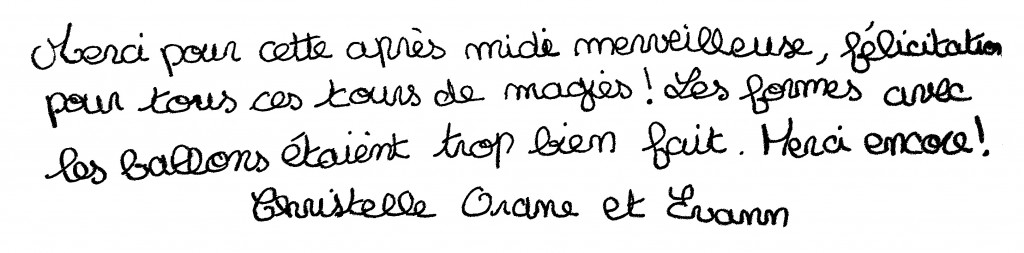 Merci pour cette après midi merveilleuse, félicitation
pour tous ces tours de magies ! Les formes avec
les ballons étaient trop bien fait. Merci encore !
Christelle Orane et Evann